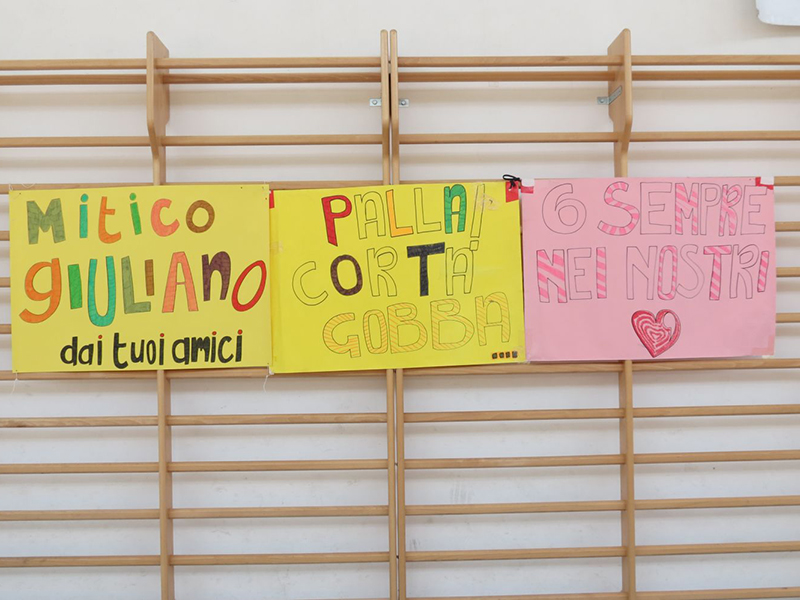 MiTiCO
GIULIANO
dai tuoi amici
PALLA/
CORTA'
GOBBA
....
6 SEMPRE
NEI NOSTRI